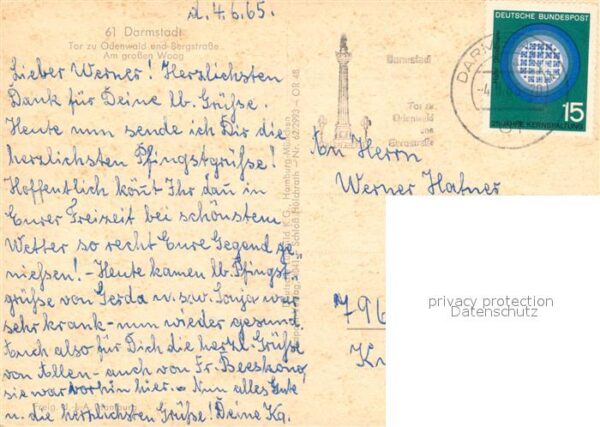 d. 4.6.65.
61 Darmstadt
Tor zu Odenwald und Bergstraße
Am großen Woog
Lieber Werner! Herzlichsten
Dank für Deine lb. Grüße.
Heute nun sende ich Dir die
herzlichsten Pfingstgrüße!
Hoffentlich könnt Ihr dann in
Eurer Freizeit bei schönstem
Wetter so recht Eure Gegend ge
nießen! - Heute kamen lb. Pfingst
grüße von Gerda u. s.w. Sonja war
sehr krank - nun wieder gesund
Auch also für Dich die herzl. Grüße
von Allen - auch von Fr.
sie war vorhin hier. - Nun alles Gute
u. die herzlichsten Grüße! Deine Kg.
Darmstadt
Tor zu
Odenwald
und
Bergstraße
DEUTSCHE BUNDESPOST
15
25 JAHRE KERNSPALTUNG
An Herrn
Werner Hafner
796
privacy protection
Datenschutz